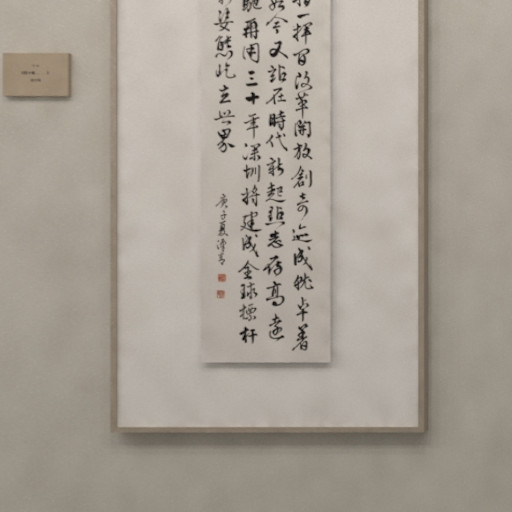 一挥间改革開放創奇迹成就卓著
今又站在時代新起點志存高遠
再用三十年深圳将建成全球標杆
姿態屹立世界
庚子夏